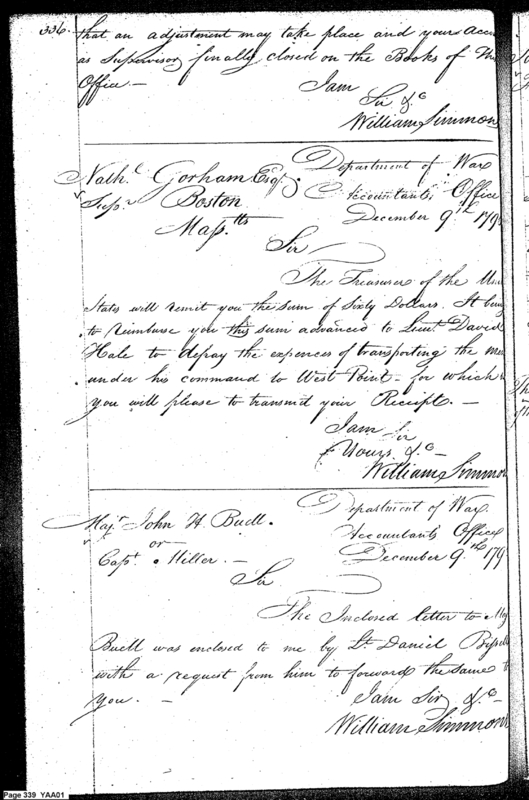 336.
that an adjustment may take place and yours Acco
as Supervisor finally closed on the Books of th
Office. —
I am
Sir &c
William Simmon
Nathl. Gorham Esqr.
Supr. Boston
Massts.
Department of War
Accountants Office
December 9th. 179
Sir
The Treasurer of the Uni
States will remit you the sum of Sixty Dollars. It being
to reimburse you this sum advanced to Lieut. David
Hale to defray the expences of transporting the men
under his command to West Point — for which
you will please to transmit your Receipt. —
I am Sir
Yours &c —
William Simmon
Majr. John H. Buell.
or
Capt. Miller. —
Department of War.
Accountants Office
December 9th. 179
Sir
The Inclosed letter to Maj
Buell was enclosed to me by Lt. Daniel Bissell
with a request from him to forward the same to
you. —
I am Sir &c —
William Simmons
Page 339 YAA01